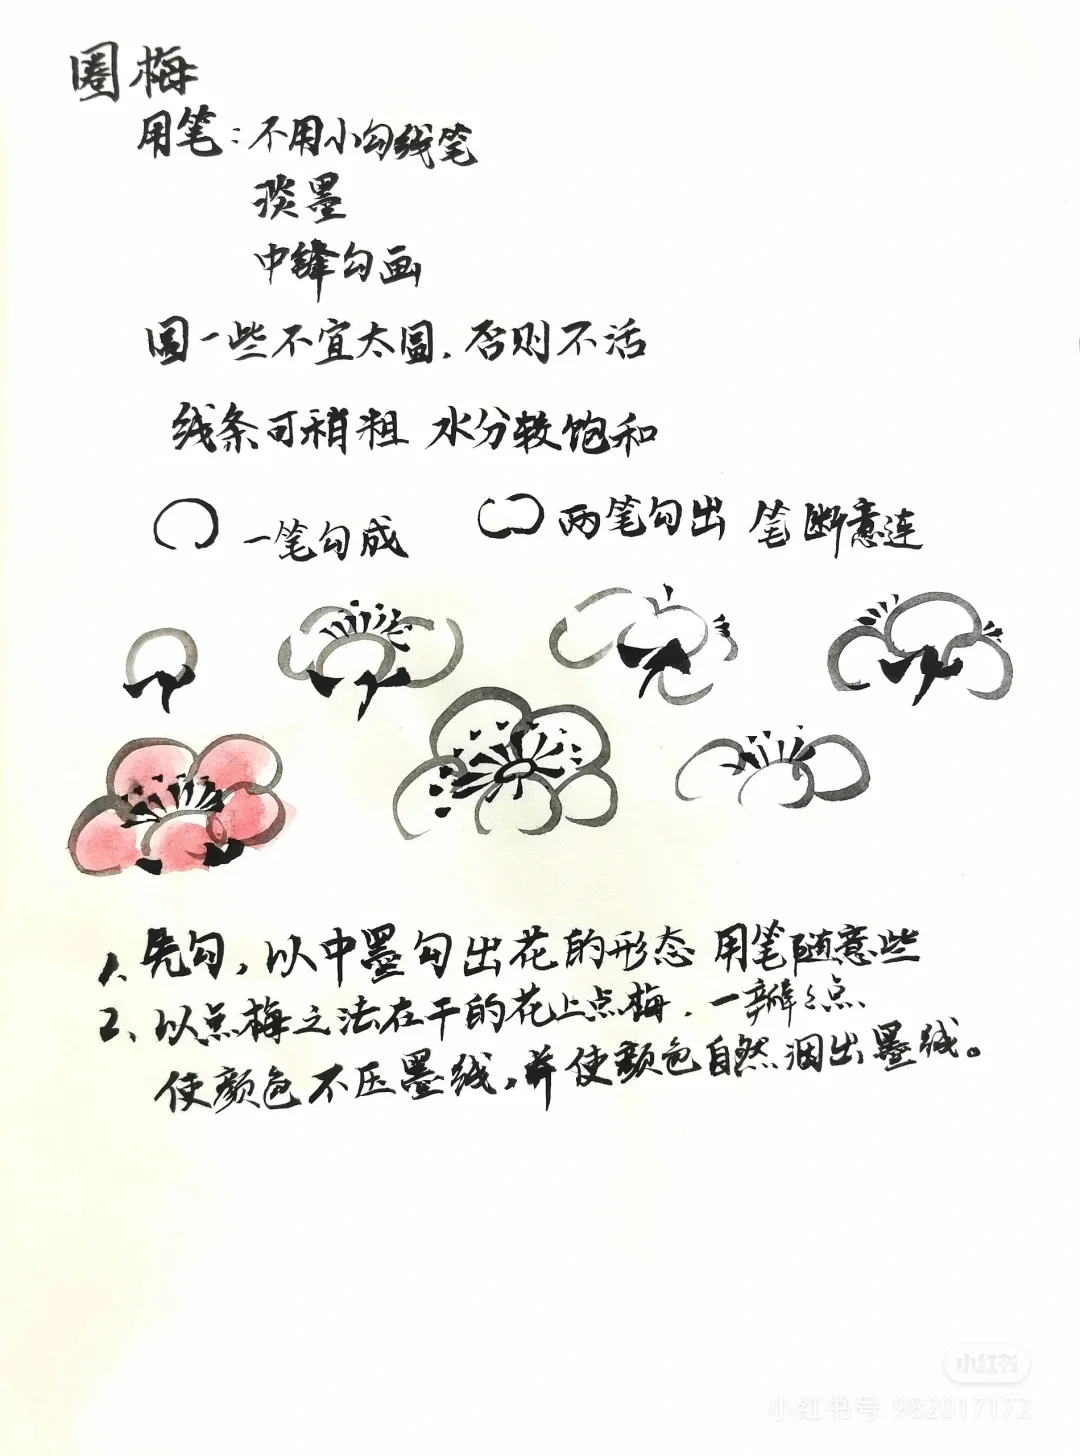 圈梅
用笔：不用小勾线笔
淡墨
中锋勾画
圆一些不宜太圆．否则不活
线条可稍粗 水分较饱和
一笔勾成 两笔勾出 笔断意连
1、先勾，以中墨勾出花的形态 用笔随意些
2、以点梅之法在干的花上点梅．一瓣々点．
使颜色不压墨线，并使颜色自然洇出墨线。
小红书
小红书号 982017172